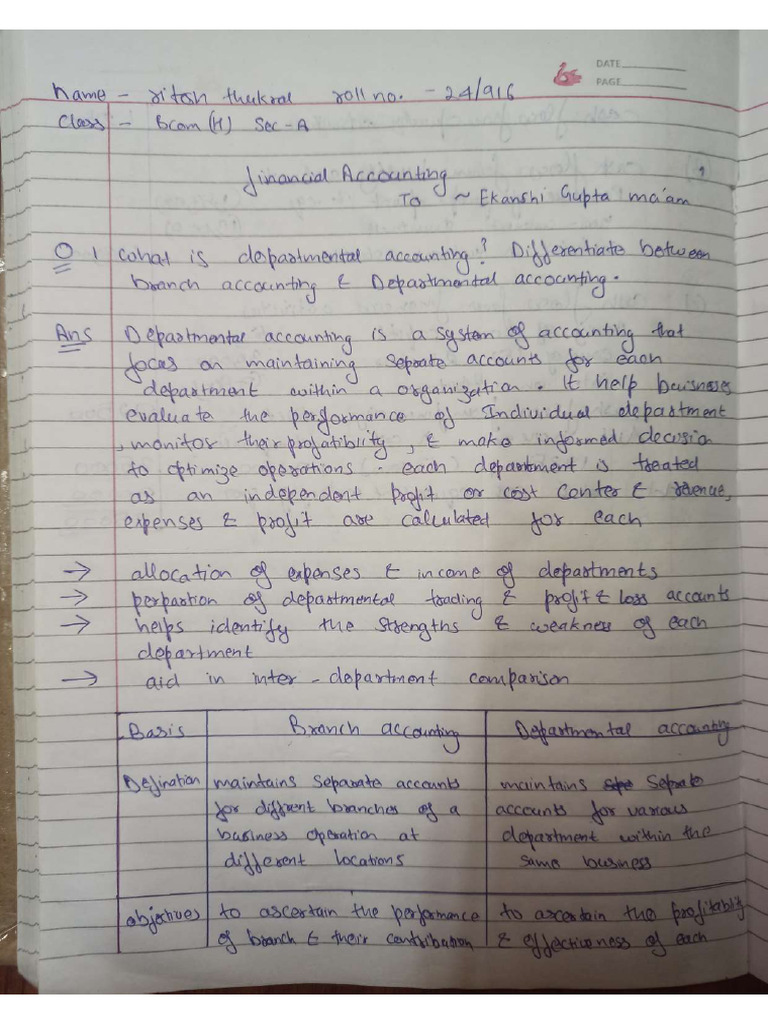 DATE
PAGE
Name - ritesh thukral roll no. - 24/916
Class - Bcom (H) Sec - A
financial Accounting
To ~ Ekanshi Gupta ma'am
Q 1 what is departmental accounting? Differentiate between
branch accounting & Departmental accounting.
Ans Departmental accounting is a system of accounting that
focus on maintaining seprate accounts for each
department within a organization. It help businesses
evaluate the performance of Individual department
, monitor their profatiblity, & make informed decision
to optimize operations. each department is treated
as an independent profit or cost center & revenue,
expenses & profit are calculated for each
→ allocation of expenses & income of departments
→ perpartion of departmental trading & profit & loss accounts
→ helps identify the strengths & weakness of each
department
→ aid in inter - department comparison
Basis Branch accounting Departmental accounting
Defination maintains separate accounts maintains seprate
for diffrent branches of a accounts for various
business operation at department within the
different locations same business
objectives to ascertain the performance to ascertain the profitablity
of branch & their contribution & effectiveness of each